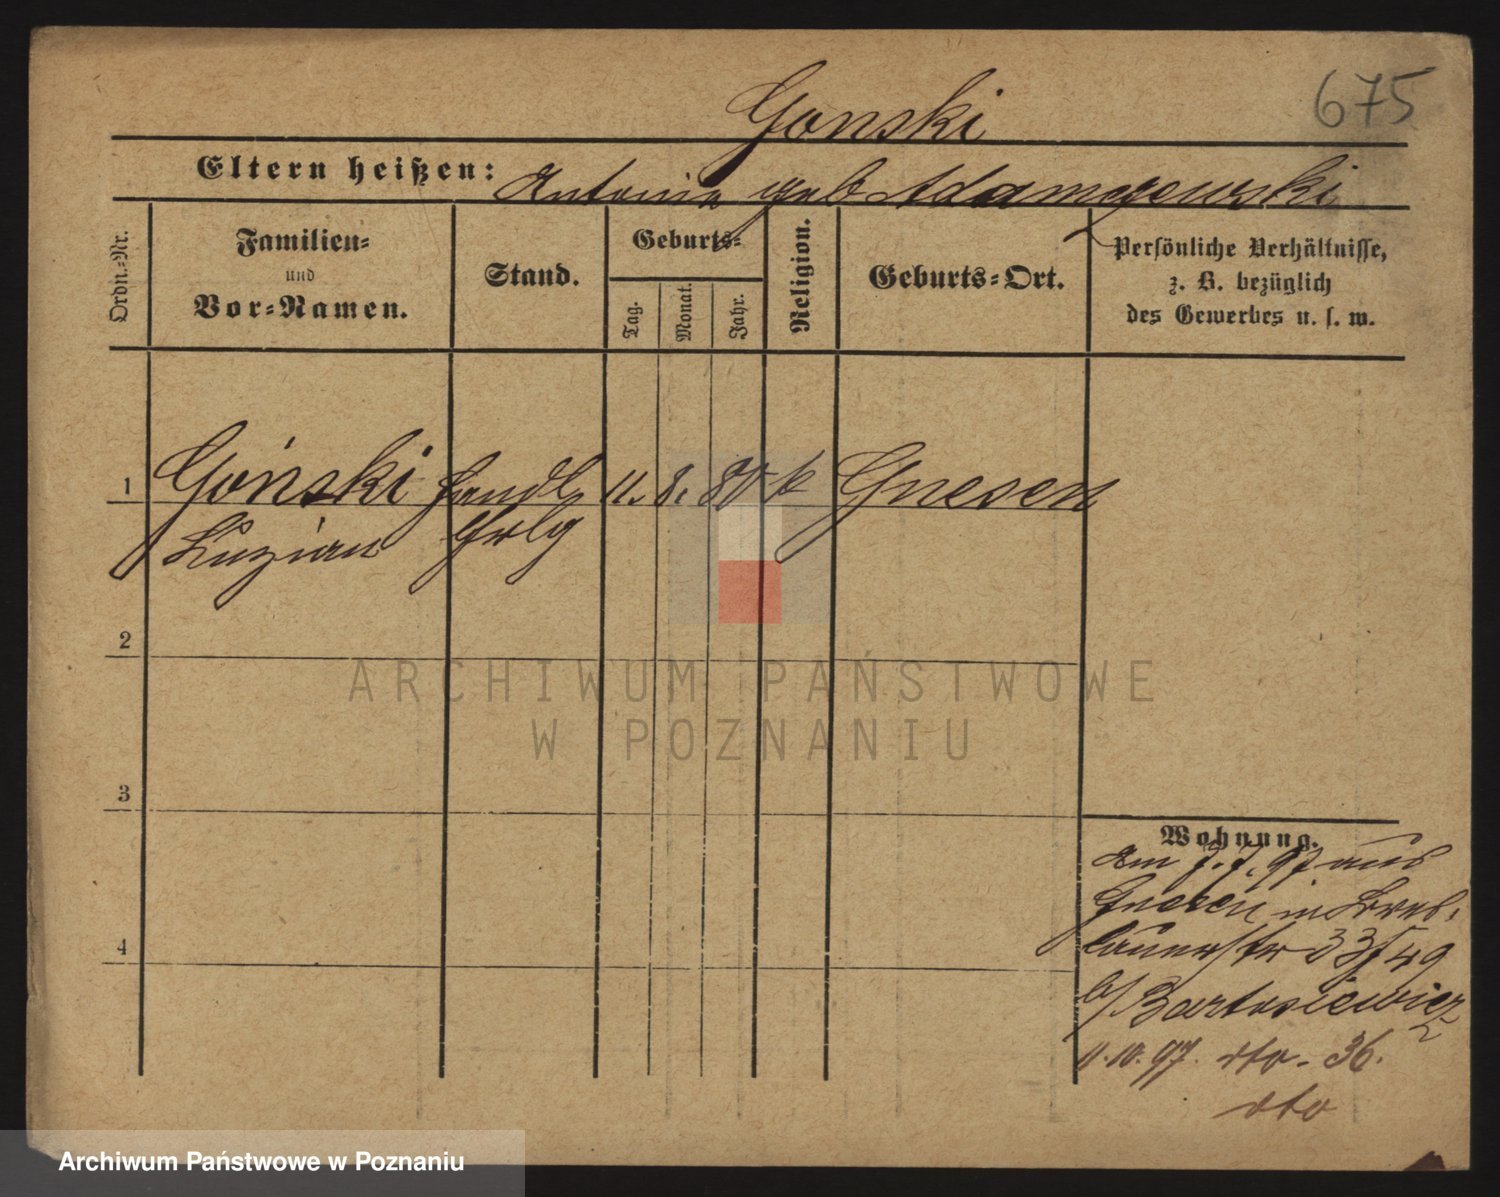 675
Gonski
Eltern heißen: Antonie geb Adamczewski
Ordn.-Nr.
Familien-
und
Vor-Namen.
Stand.
Geburts-
Tag.
Monat.
Jahr.
Religion.
Geburts-Ort.
Persönliche Verhältnisse,
z. B. bezüglich
des Gewerbes u. s. w.
1 Goński Handl 11. 8. 80 k Gnesen
Luzian
2
3
4
Wohnung.
Am 7. 7. 97 aus
Gnesen in Bres-
lauerstr 33/49
b/ Bartosiewicz
11.10.97. dto. 36.
dto
ARCHIWUM PAŃSTWOWE
W POZNANIU
Archiwum Państwowe w Poznaniu